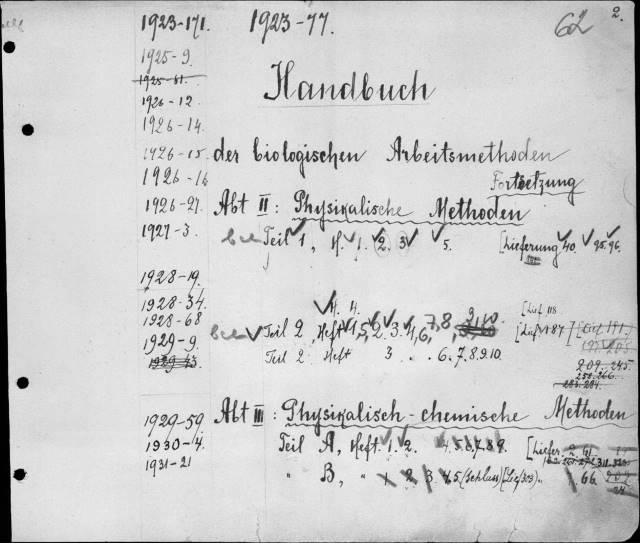 1923-171. 1923-77. 62 2.
1925-9.
1925-61.
Handbuch
1926-12.
1926-14.
1926-15. der biologischen Arbeitsmethoden
1926-16 Fortsetzung
1926-27. Abt II: Physikalische Methoden
1927-3. Teil 1, H. 1. 2. 3. 5. [Lieferung 40. 95. 96.
1928-19.
1928-34. 4. 4. [Lief 118
1928-68
1929-9. Teil 2, Heft 1, 5, 2. 3. 4, 6, 7, 8, 9, 10. [Lief 187
1929-43. Teil 2. Heft 3 . . 6. 7. 8. 9. 10.
209. 245.
258. 266.
283. 284.
1929-59 Abt III: Physikalisch-chemische Methoden
1930-4. Teil A, Heft. 1. 2. 4. 5. 6. 7. 8 9. [Liefer. 2. 61
1931-21 " B, " 1 2. 3. 4. 5 (Schluss) [Lief 303) 66.